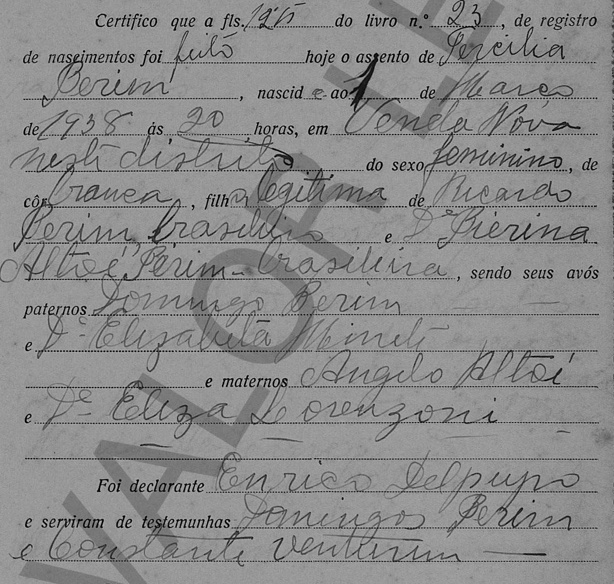 Certifico que a fls. 125 do livro n.º 23, de registro
de nascimentos foi feito hoje o assento de Percilia
Berim, nascida ao 1 de Março
de 1938 ás 20 horas, em Venda Nova
neste distrito do sexo feminino, de
côr branca, filha legitima de Ricardo
Perim, brasileiro e Dª Pierina
Altoé Perim - brasileira, sendo seus avós
paternos Domingo Berim
e Dª Elizabéta Mineti
e maternos Angelo Altoé
e Dª Eliza Lorenzoni
Foi declarante Enrico Delpupo
e serviram de testemunhas Domingos Perim
e Constante Venturim
VALOR LE